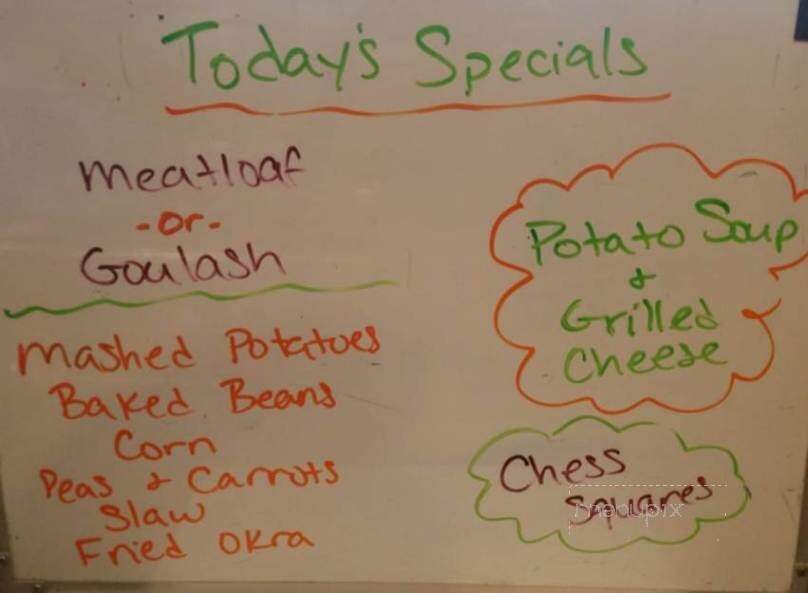 Today's Specials
Meatloaf
-or-
Goulash
Mashed Potatoes
Baked Beans
Corn
Peas & Carrots
Slaw
Fried Okra
Potato Soup
&
Grilled
Cheese
Chess
Squares
menupix